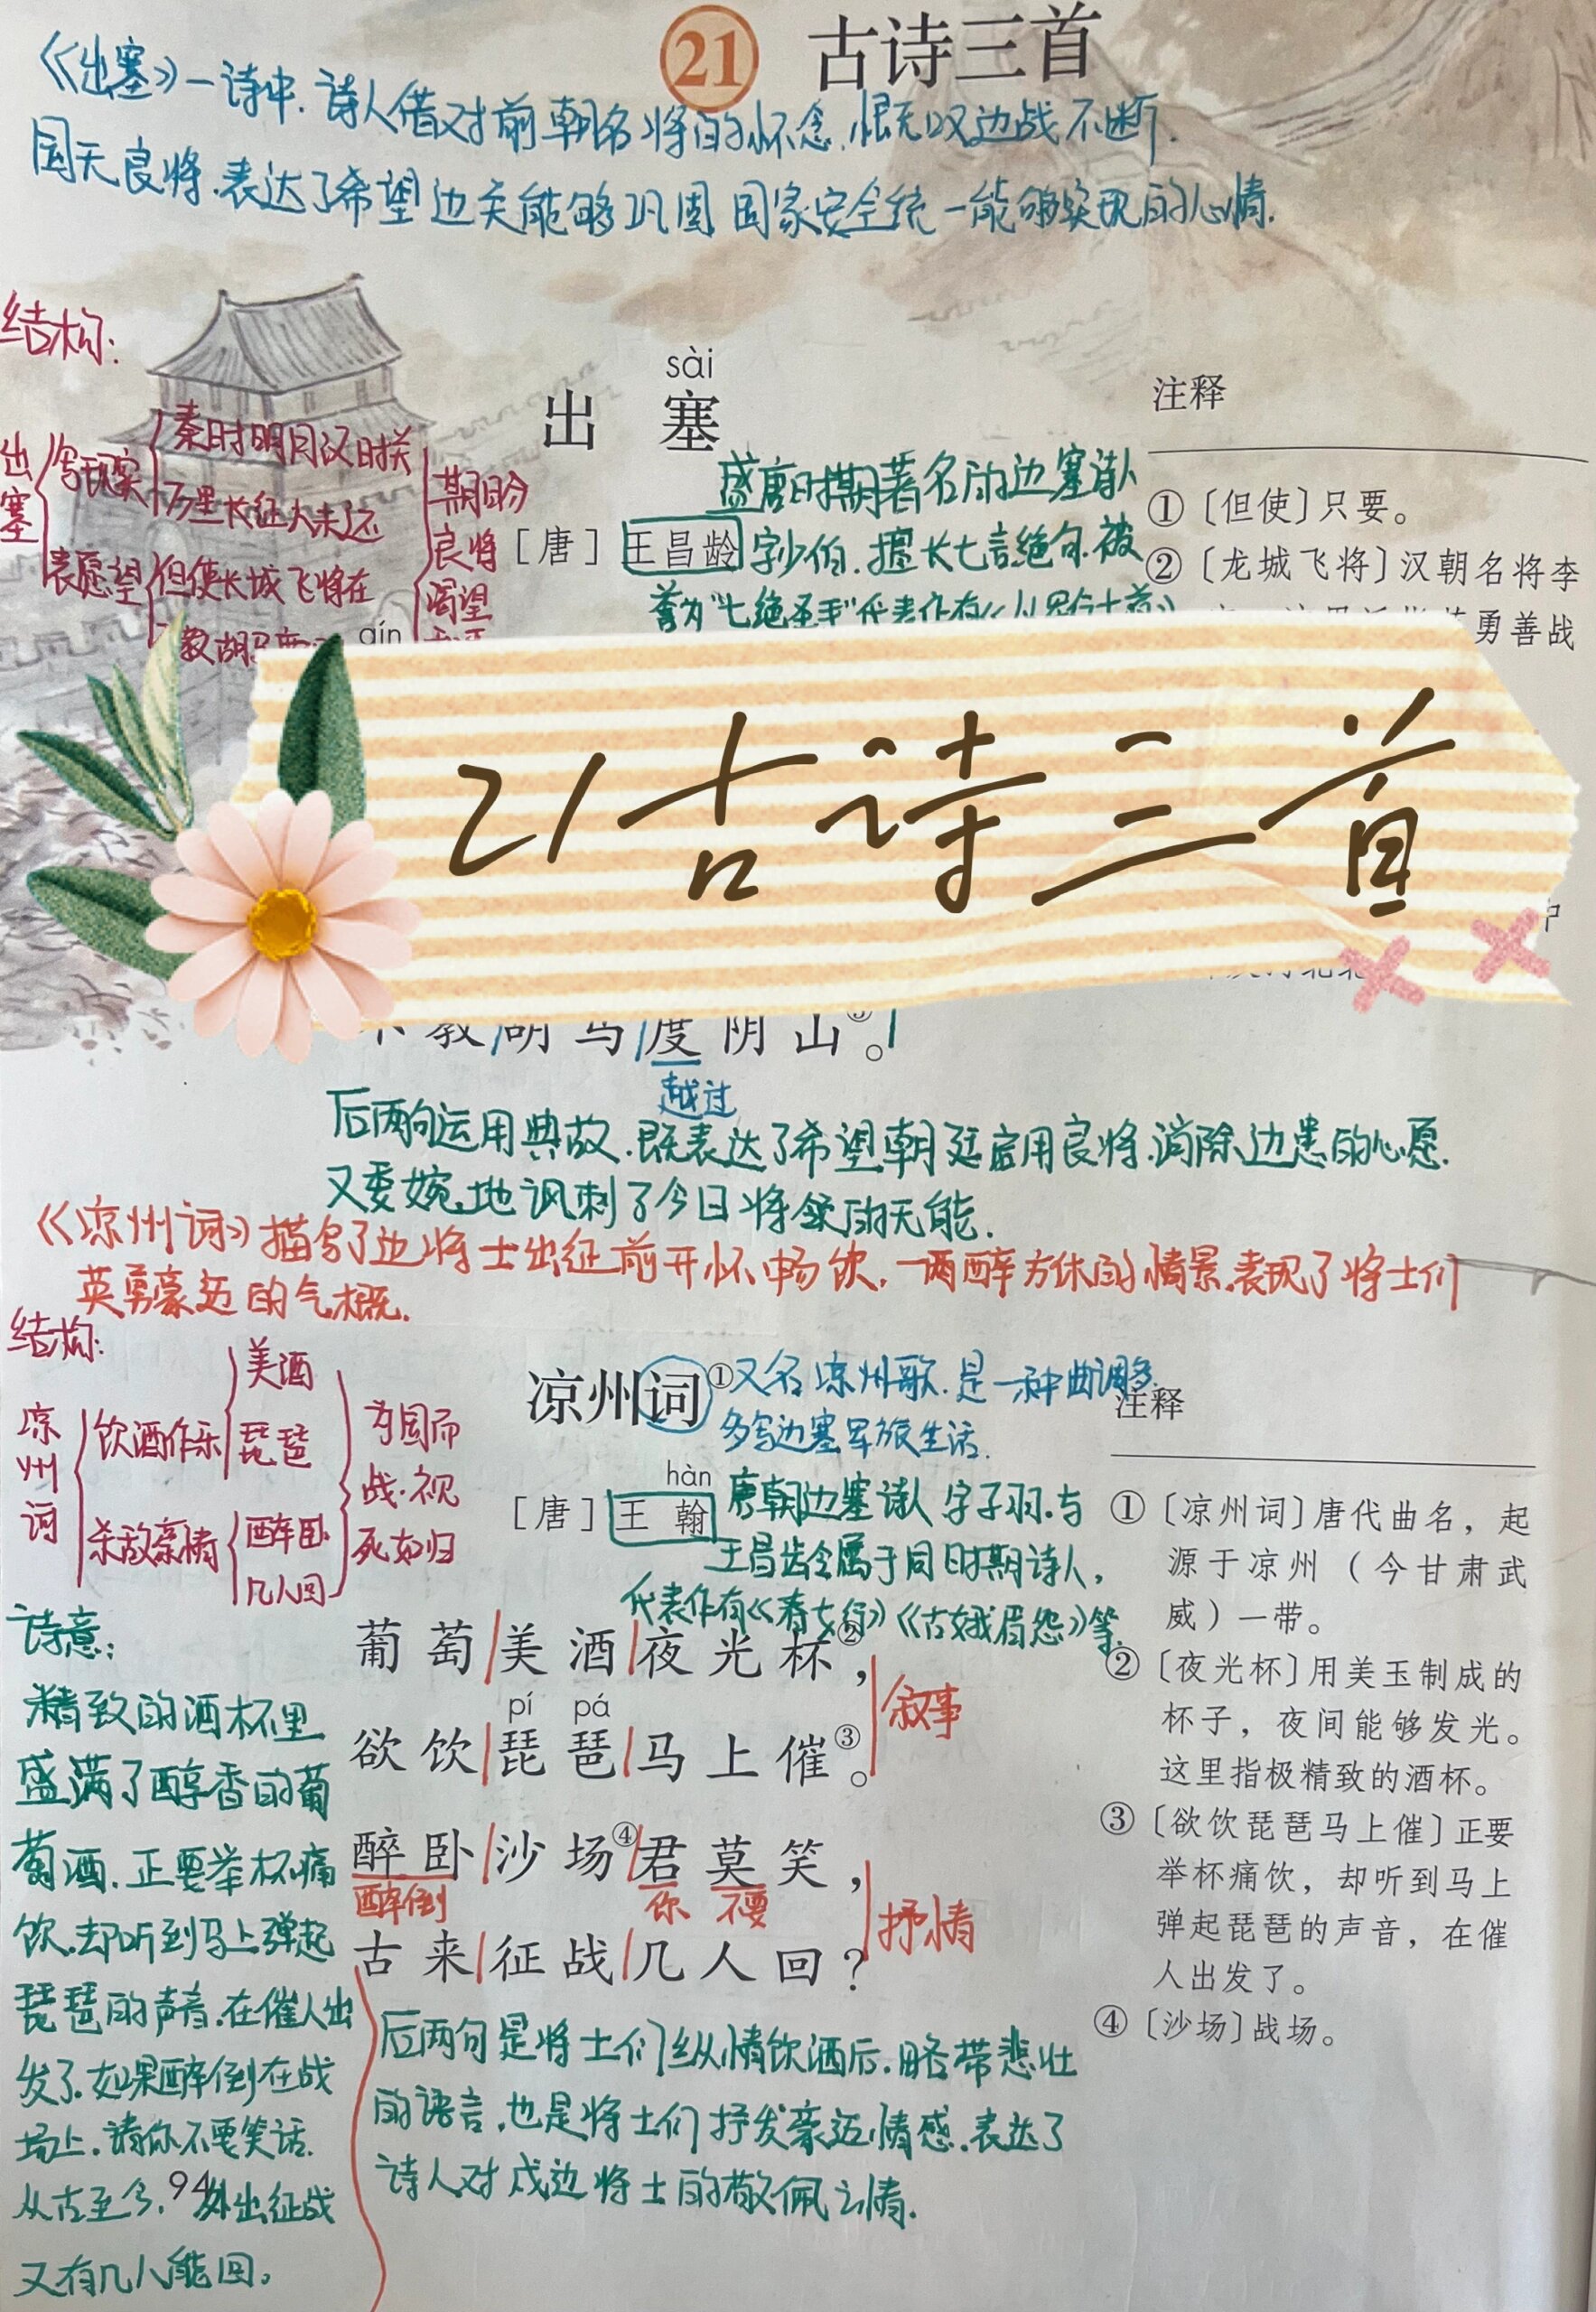 21 古诗三首
《出塞》一诗中.诗人借对前朝名将的怀念,恨无以边战不断.
国无良将.表达了希望边关能够巩固 国家安全统一能够实现的心情.
结构:
出塞
写现实
秦时明月汉时关
万里长征人未还
表愿望
但使长城飞将在
教胡马
期盼
良将
渴望
sài
出 塞
盛唐时期著名的边塞诗人
[唐] 王昌龄 字少伯.擅长七言绝句.被
誉为"七绝圣手"代表作有《从军行七首》
qín
注释
①〔但使〕只要。
②〔龙城飞将〕汉朝名将李
勇善战
21古诗三首
教胡马度阴山。
越过
后两句运用典故.既表达了希望朝廷启用良将.消除边患的心愿.
又委婉地讽刺了今日将领的无能.
《凉州词》描写了边将士出征前开怀畅饮.一两醉方休的情景.表现了将士们
英勇豪迈的气概.
结构:
凉州词
饮酒作乐
美酒
琵琶
杀敌豪情
醉卧
几人回
为国而
战·视
死如归
凉州词①
又名凉州歌.是一种曲调名.
多写边塞军旅生活.
hàn
[唐] 王 翰
唐朝边塞诗人 字子羽.与
王昌龄属于同时期诗人,
代表作有《春女行》《古娥眉怨》等.
葡萄美酒夜光杯②,
pí pá
欲饮琵琶马上催③。
叙事
醉卧沙场④君莫笑,
醉倒 你 不要
古来征战几人回?
抒情
后两句是将士们纵情饮酒后.略带悲壮
的语言.也是将士们抒发豪迈情感.表达了
诗人对戍边将士的敬佩之情.
诗意:
精致的酒杯里
盛满了醇香的葡
萄酒.正要举杯痛
饮.却听到马上弹起
琵琶的声音.在催人出
发了.如果醉倒在战
场上.请你不要笑话.
从古至今.外出征战
又有几人能回。
94
注释
①〔凉州词〕唐代曲名，起
源于凉州（今甘肃武
威）一带。
②〔夜光杯〕用美玉制成的
杯子，夜间能够发光。
这里指极精致的酒杯。
③〔欲饮琵琶马上催〕正要
举杯痛饮，却听到马上
弹起琵琶的声音，在催
人出发了。
④〔沙场〕战场。